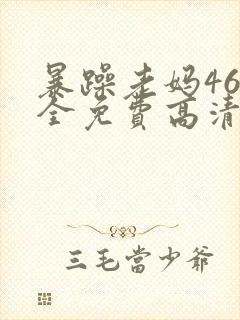 暴躁老妈46
全免費高清
三毛當少爺